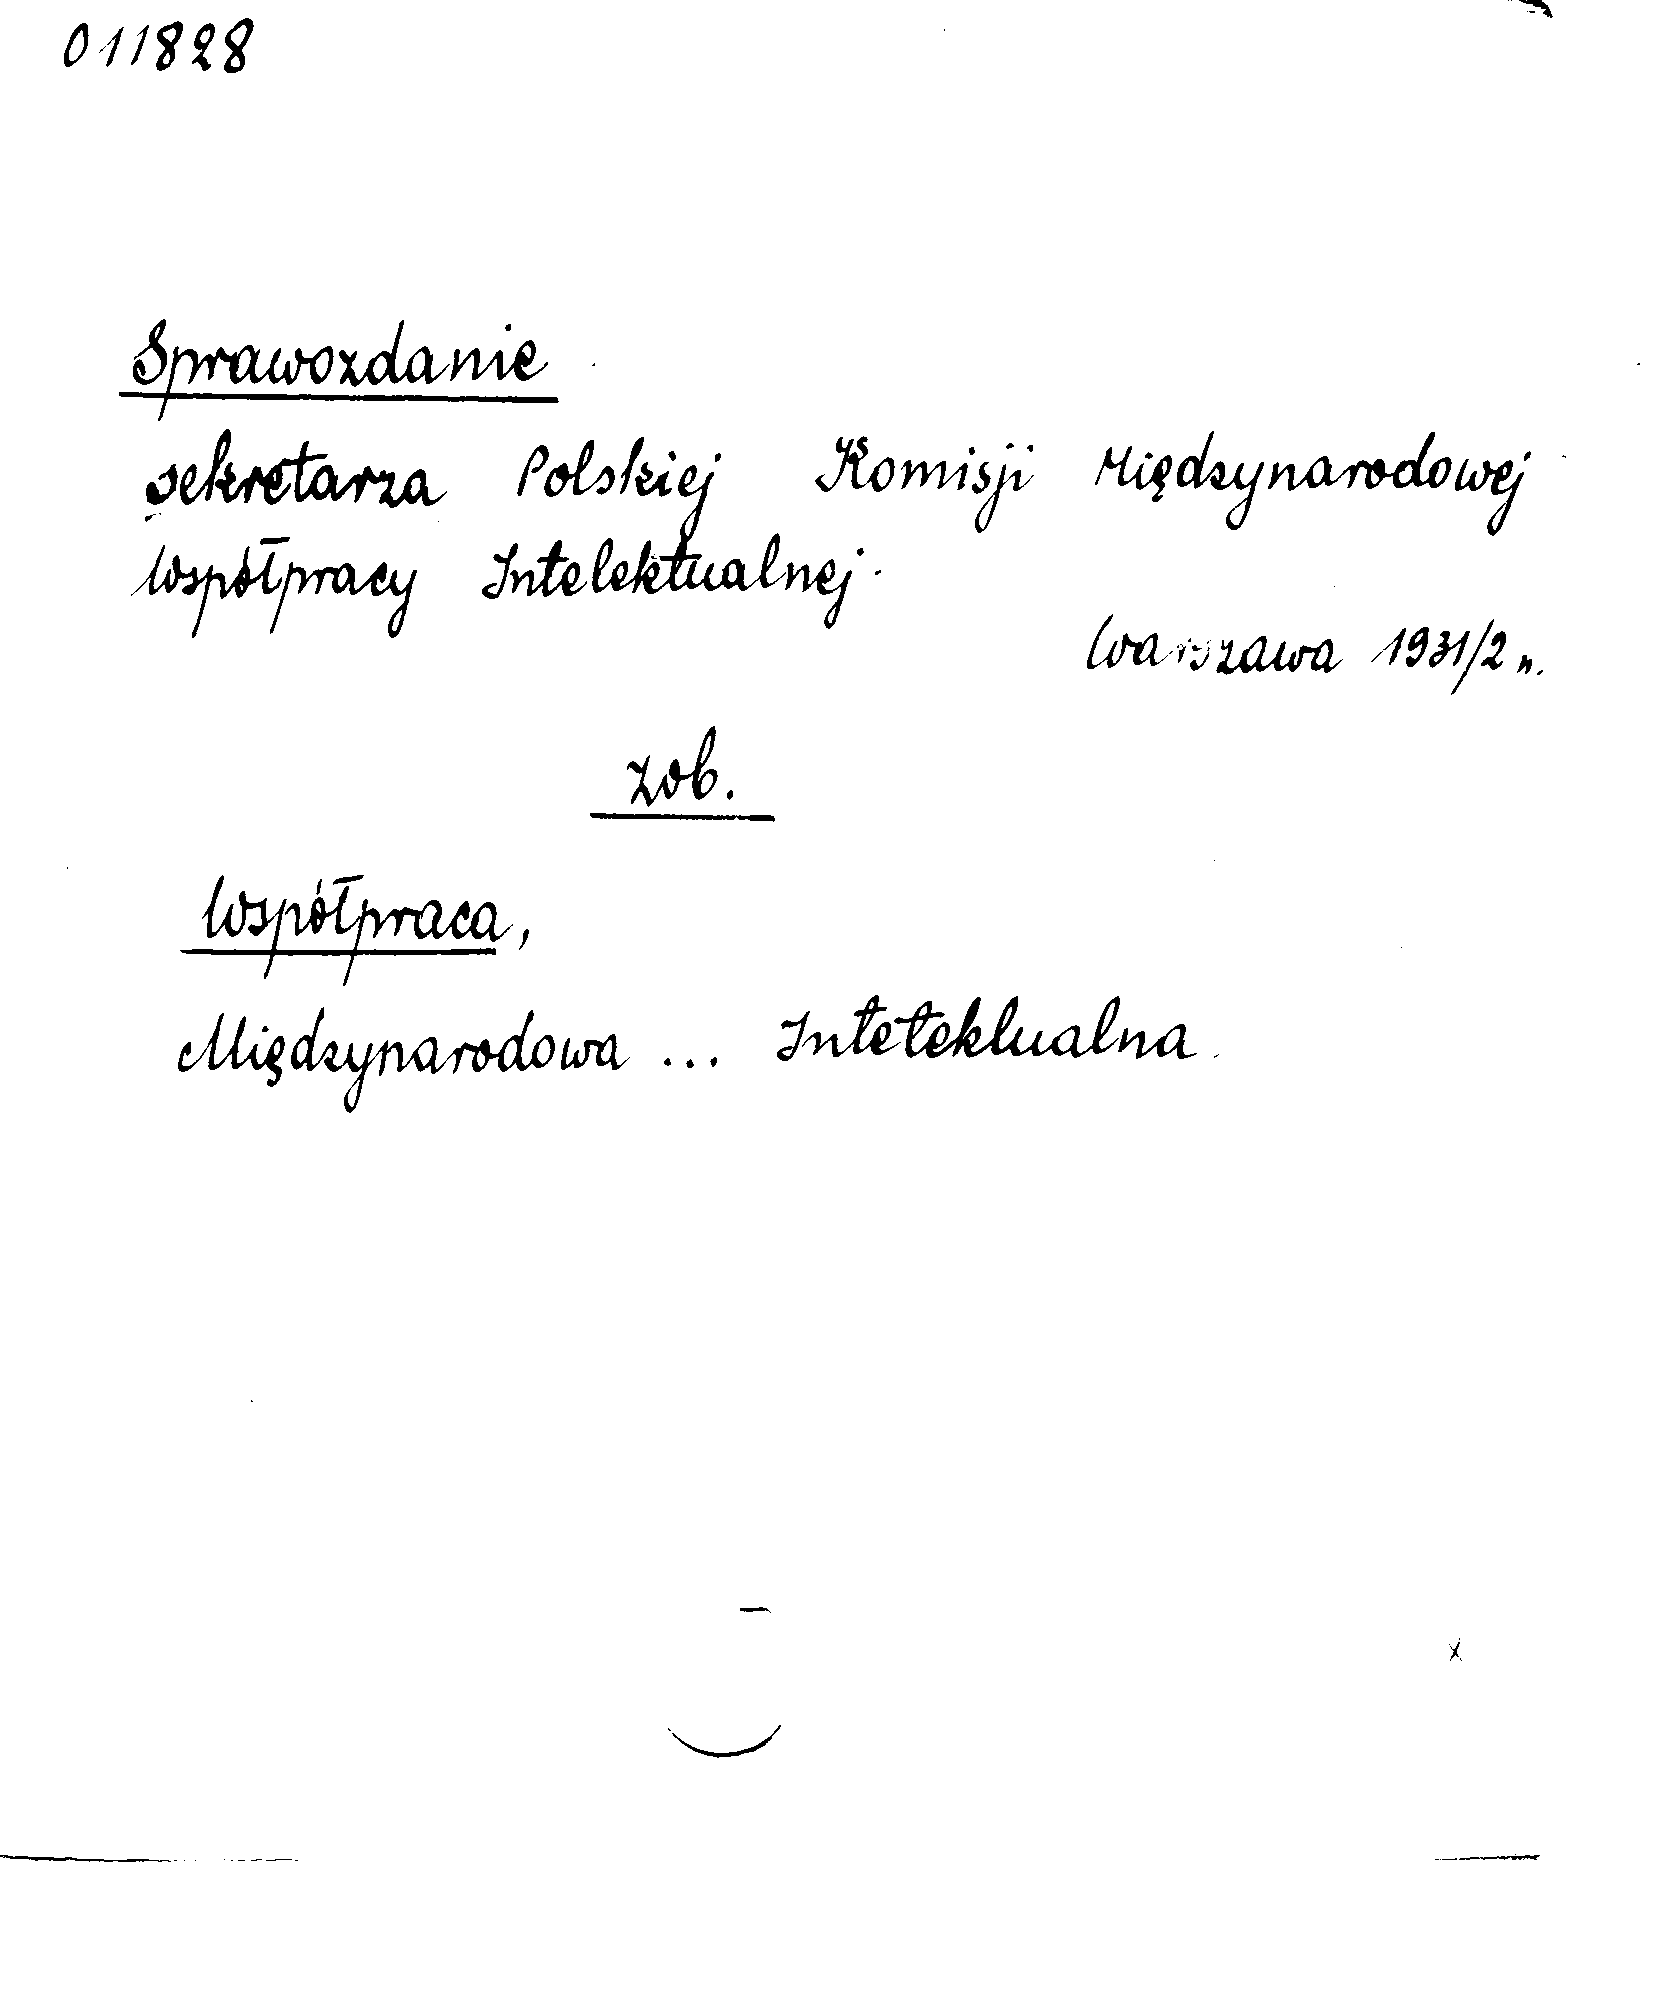 011828
Sprawozdanie
sekretarza Polskiej Komisji Międzynarodowej
Współpracy Intelektualnej.
Warszawa 1931/2 n.
zob.
Współpraca,
Międzynarodowa ... Intelektualna.
x